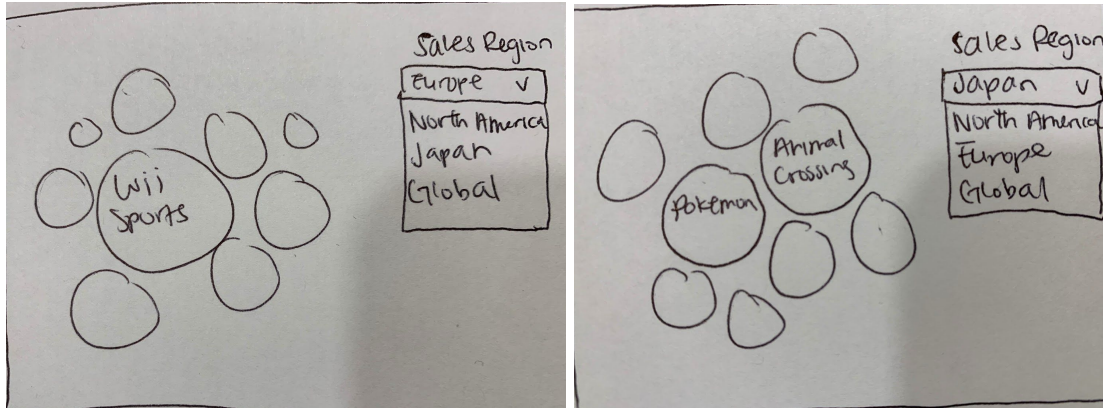 Sales Region
Europe v
North America
Japan
Global
Wii
Sports
Sales Region
Japan v
North America
Europe
Global
Animal
Crossing
Pokemon